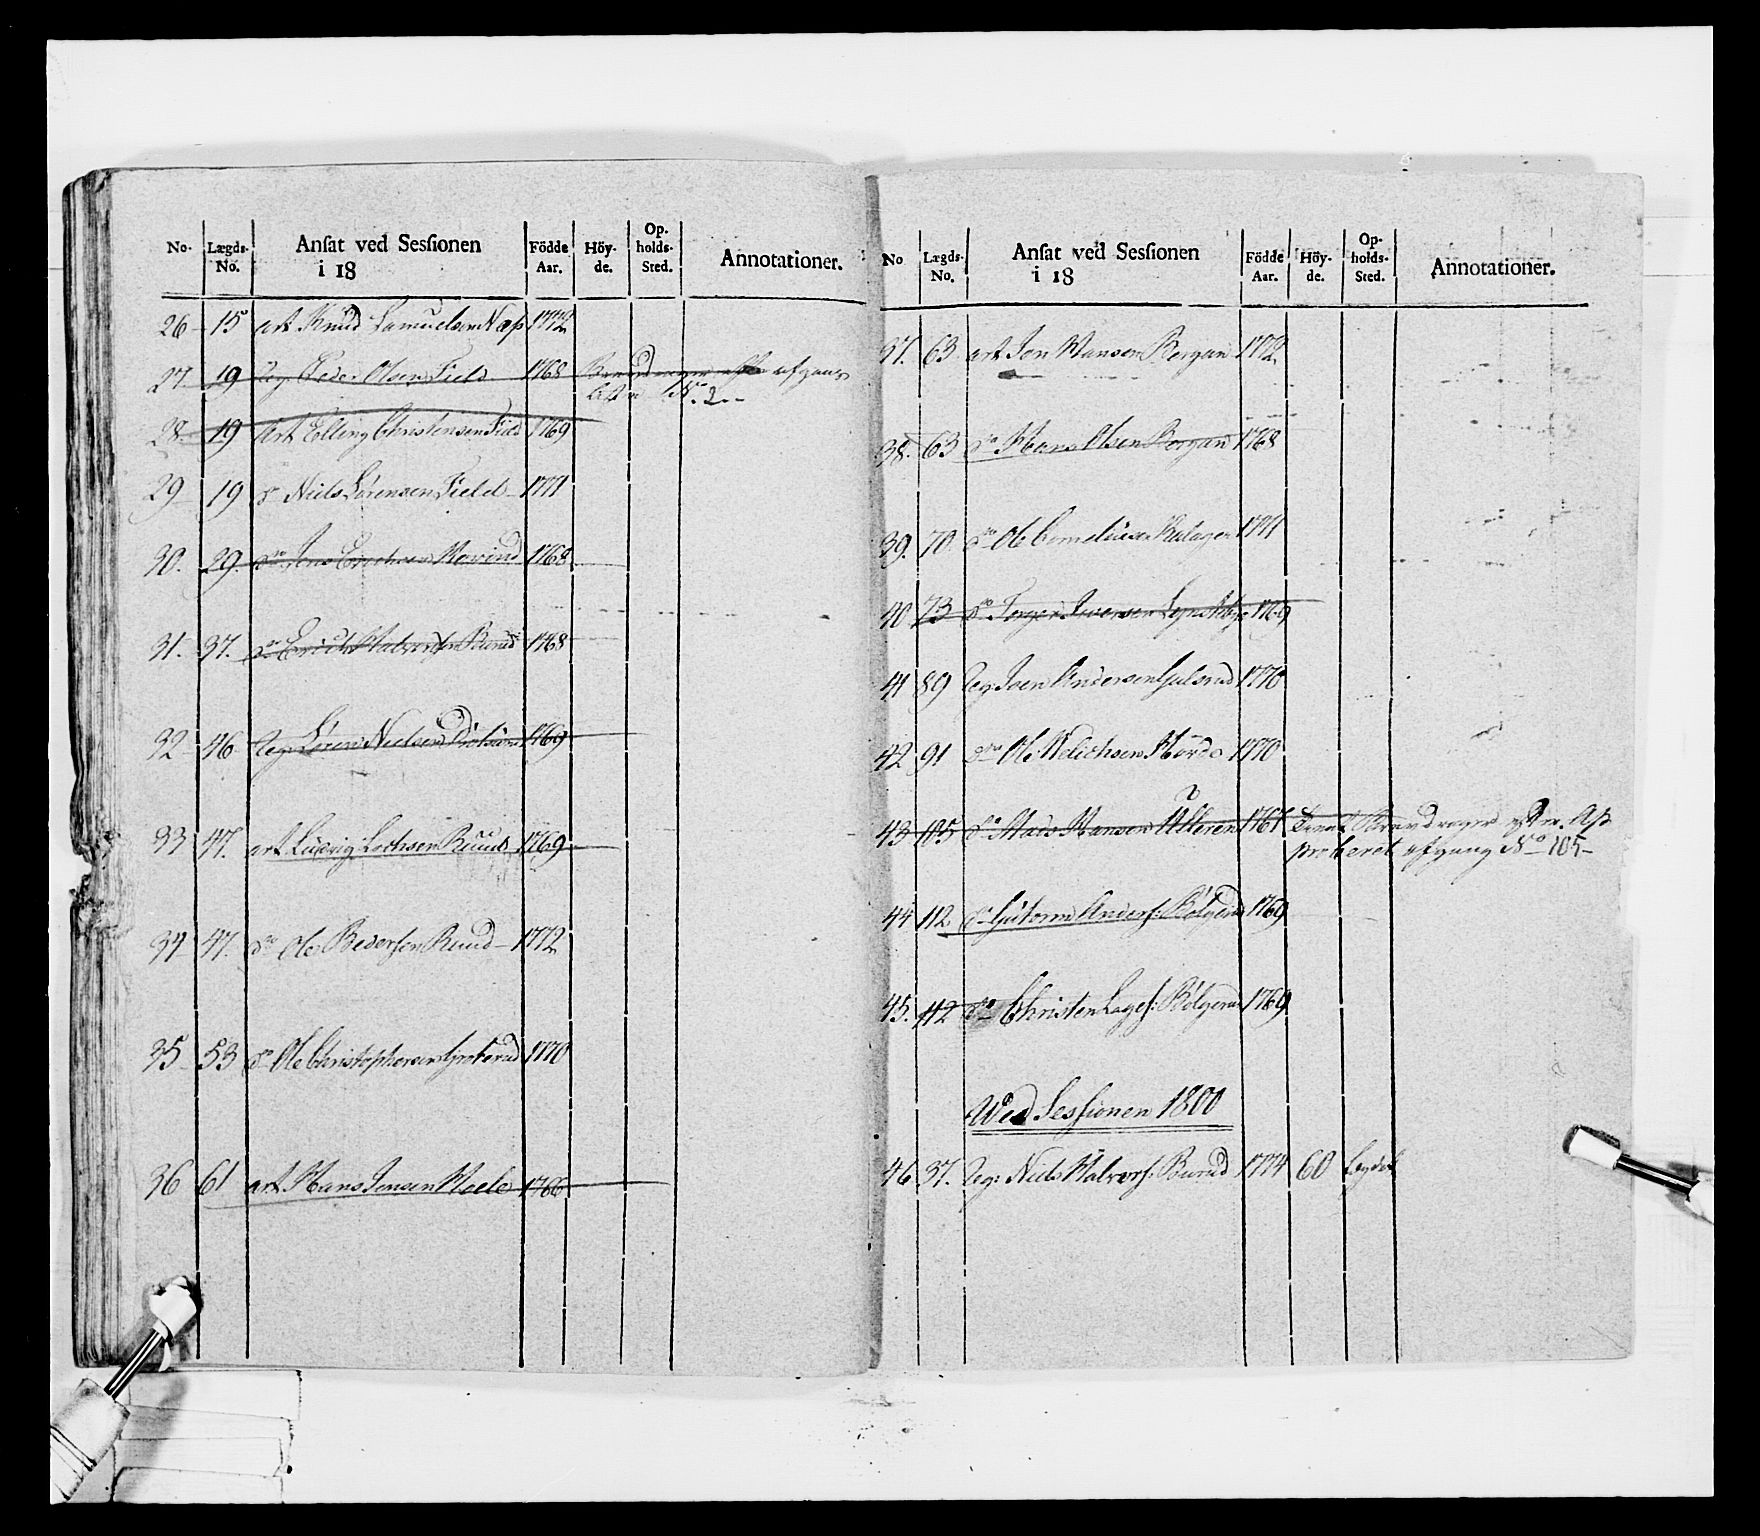 No. Lægds-No. Ansat ved Sessionen i 18 Födde Aar. Höy-de. Op-holds-Sted. Annotationer.
26 15 art Knud Samuelsen Næs 1772
27. 19 Peder Olsen Field 1768 afgangs
No. 2
28. 19 Art Elling Christensen Field 1769
29 19 do Niels Sørensen Field 1771
30. 29. do Jens 1768
31. 37. do Erich Halvorsen Burud 1768
32 46 Søren Nielsen 1769
33 47. art Ludvig Lochsen Ruud 1769
34 47. do Ole Pedersen Ruud 1772
35 53 do Ole Christophersen Grøterud 1770
36 61 art Hans Jensen Moele 1766
No Lægds-No. Ansat ved Sessionen i 18 Födde Aar. Höy-de. Op-holds-Sted. Annotationer.
37. 63 art Jon Hansen Bergan 1772
38. 63 do Hans Olsen Bergan 1768
39. 70. do Ole Corneliusen 1771
40 73 do Torger Iversen 1769
41 89 Joen Andersen Gulsrud 1770
42 91 do Ole 1770
43 105 do Mads Hansen Ulleren 1767
afgang No 105
44 112 do Guttorm Anders: Bølgerud 1769
45. 112 do Christen Lages: Bølgerud 1769
Wed Sessionen 1800
46 37. Niels Halvors: Burud 1774 60 Lægdet